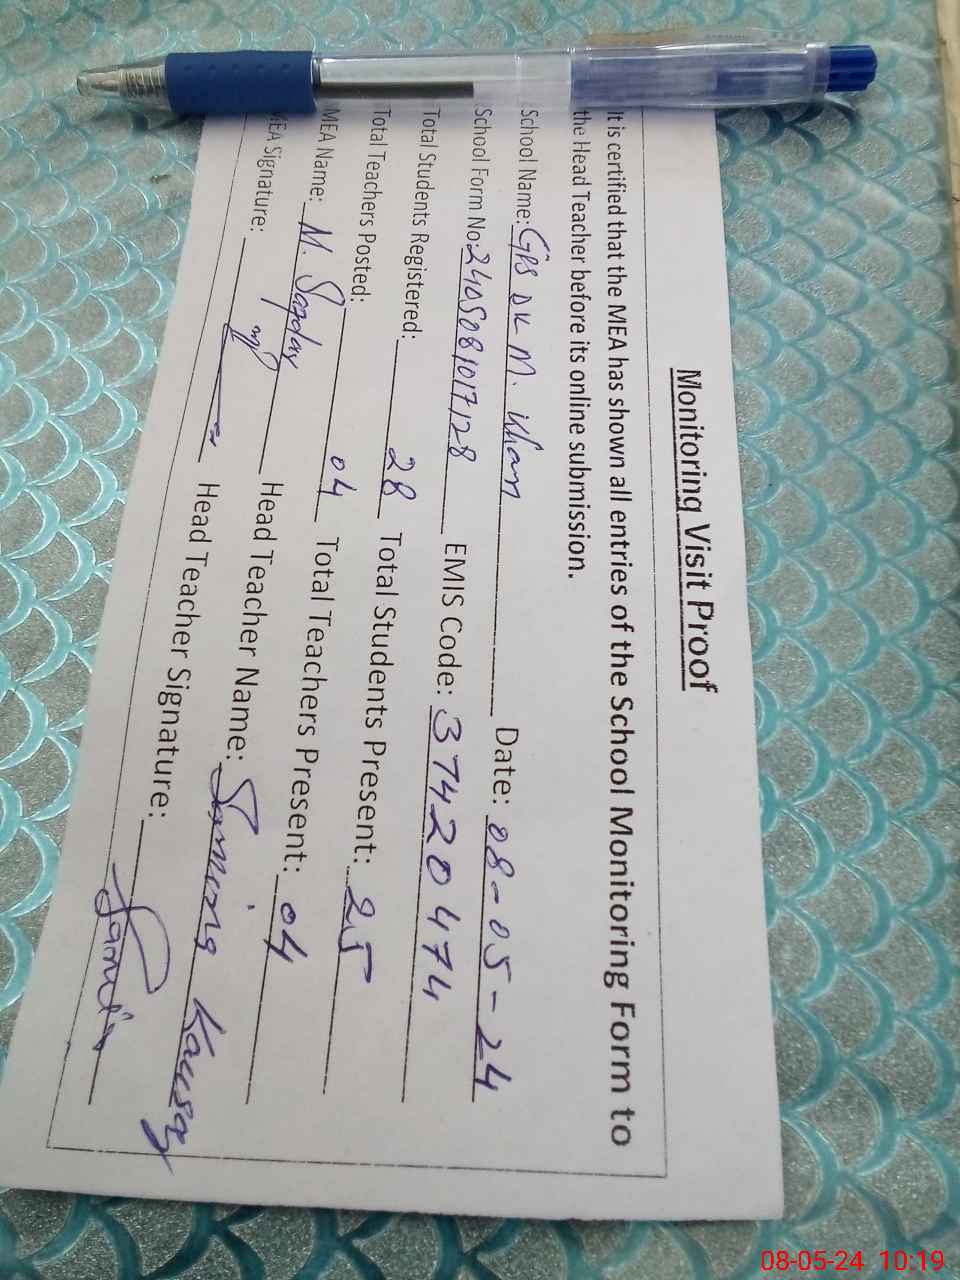 Monitoring Visit Proof
It is certified that the MEA has shown all entries of the School Monitoring Form to
the Head Teacher before its online submission.
School Name: GPS DK M. Khan Date: 08-05-24
School Form No: 2405081017128 EMIS Code: 37420474
Total Students Registered: 28 Total Students Present: 25
Total Teachers Posted: 04 Total Teachers Present: 04
MEA Name: M. Head Teacher Name: Samina Kausar
MEA Signature: Head Teacher Signature: Samina
08-05-24 10:19